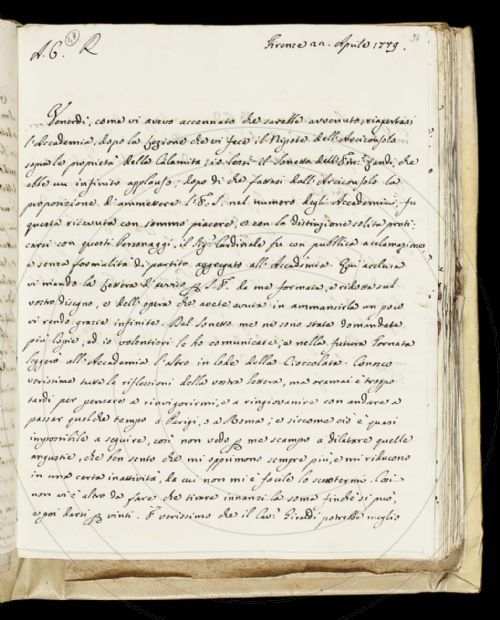 A. C. R
Firenze 22. Aprile 1779.
Venerdì, come vi avevo accennato che sarebbe avvenuto, riapertasi
l'Accademia, dopo la Lezione che vi fece il Nipote dell'Arciconsolo
sopra le proprietà della Calamita, io lessi il Sonetto dell' Zendi, che
ebbe un infinito applauso; dopo di che fattasi dall'Arciconsolo la
proposizione d'ammettere nel numero degli Accademici, fu
questa ricevuta con sommo piacere, e con la distinzione solita prati-
carsi con questi Personaggi, il Sig. Cardinale fu con pubblica acclamazione
e senza formalità di partito aggregato all'Accademia. Qui acclusa
vi mando la lettera d'avviso da me formata, e ridotta sul
vostro disegno, e dell'opera che avete avuta in ammannirla un poco
vi rendo grazie infinite. Del Sonetto me ne sono state domandate
più Copie, ed io volentieri le ho comunicate, e nella futura Tornata
leggerò all'Accademia l'altro in lode della Cioccolata. Conosco
verissime tutte le riflessioni della vostra lettera, ma oramai è troppo
tardi per pensare a rinvigorirmi, e a ringiovanire con andare a
passar qualche tempo a Parigi, o a Roma; e siccome ciò è quasi
impossibile a seguire, così non vedo me scampo a dilatare quelle
angustie, che ben sento che mi opprimono sempre più, e mi riducono
in una certa inattività, da cui non mi è facile lo scuotermi. Così
non vi è altro da fare che tirare innanzi la soma finchè si può,
e poi darsi vinti. È verissimo che il Cav. Giraldi potrebbe meglio